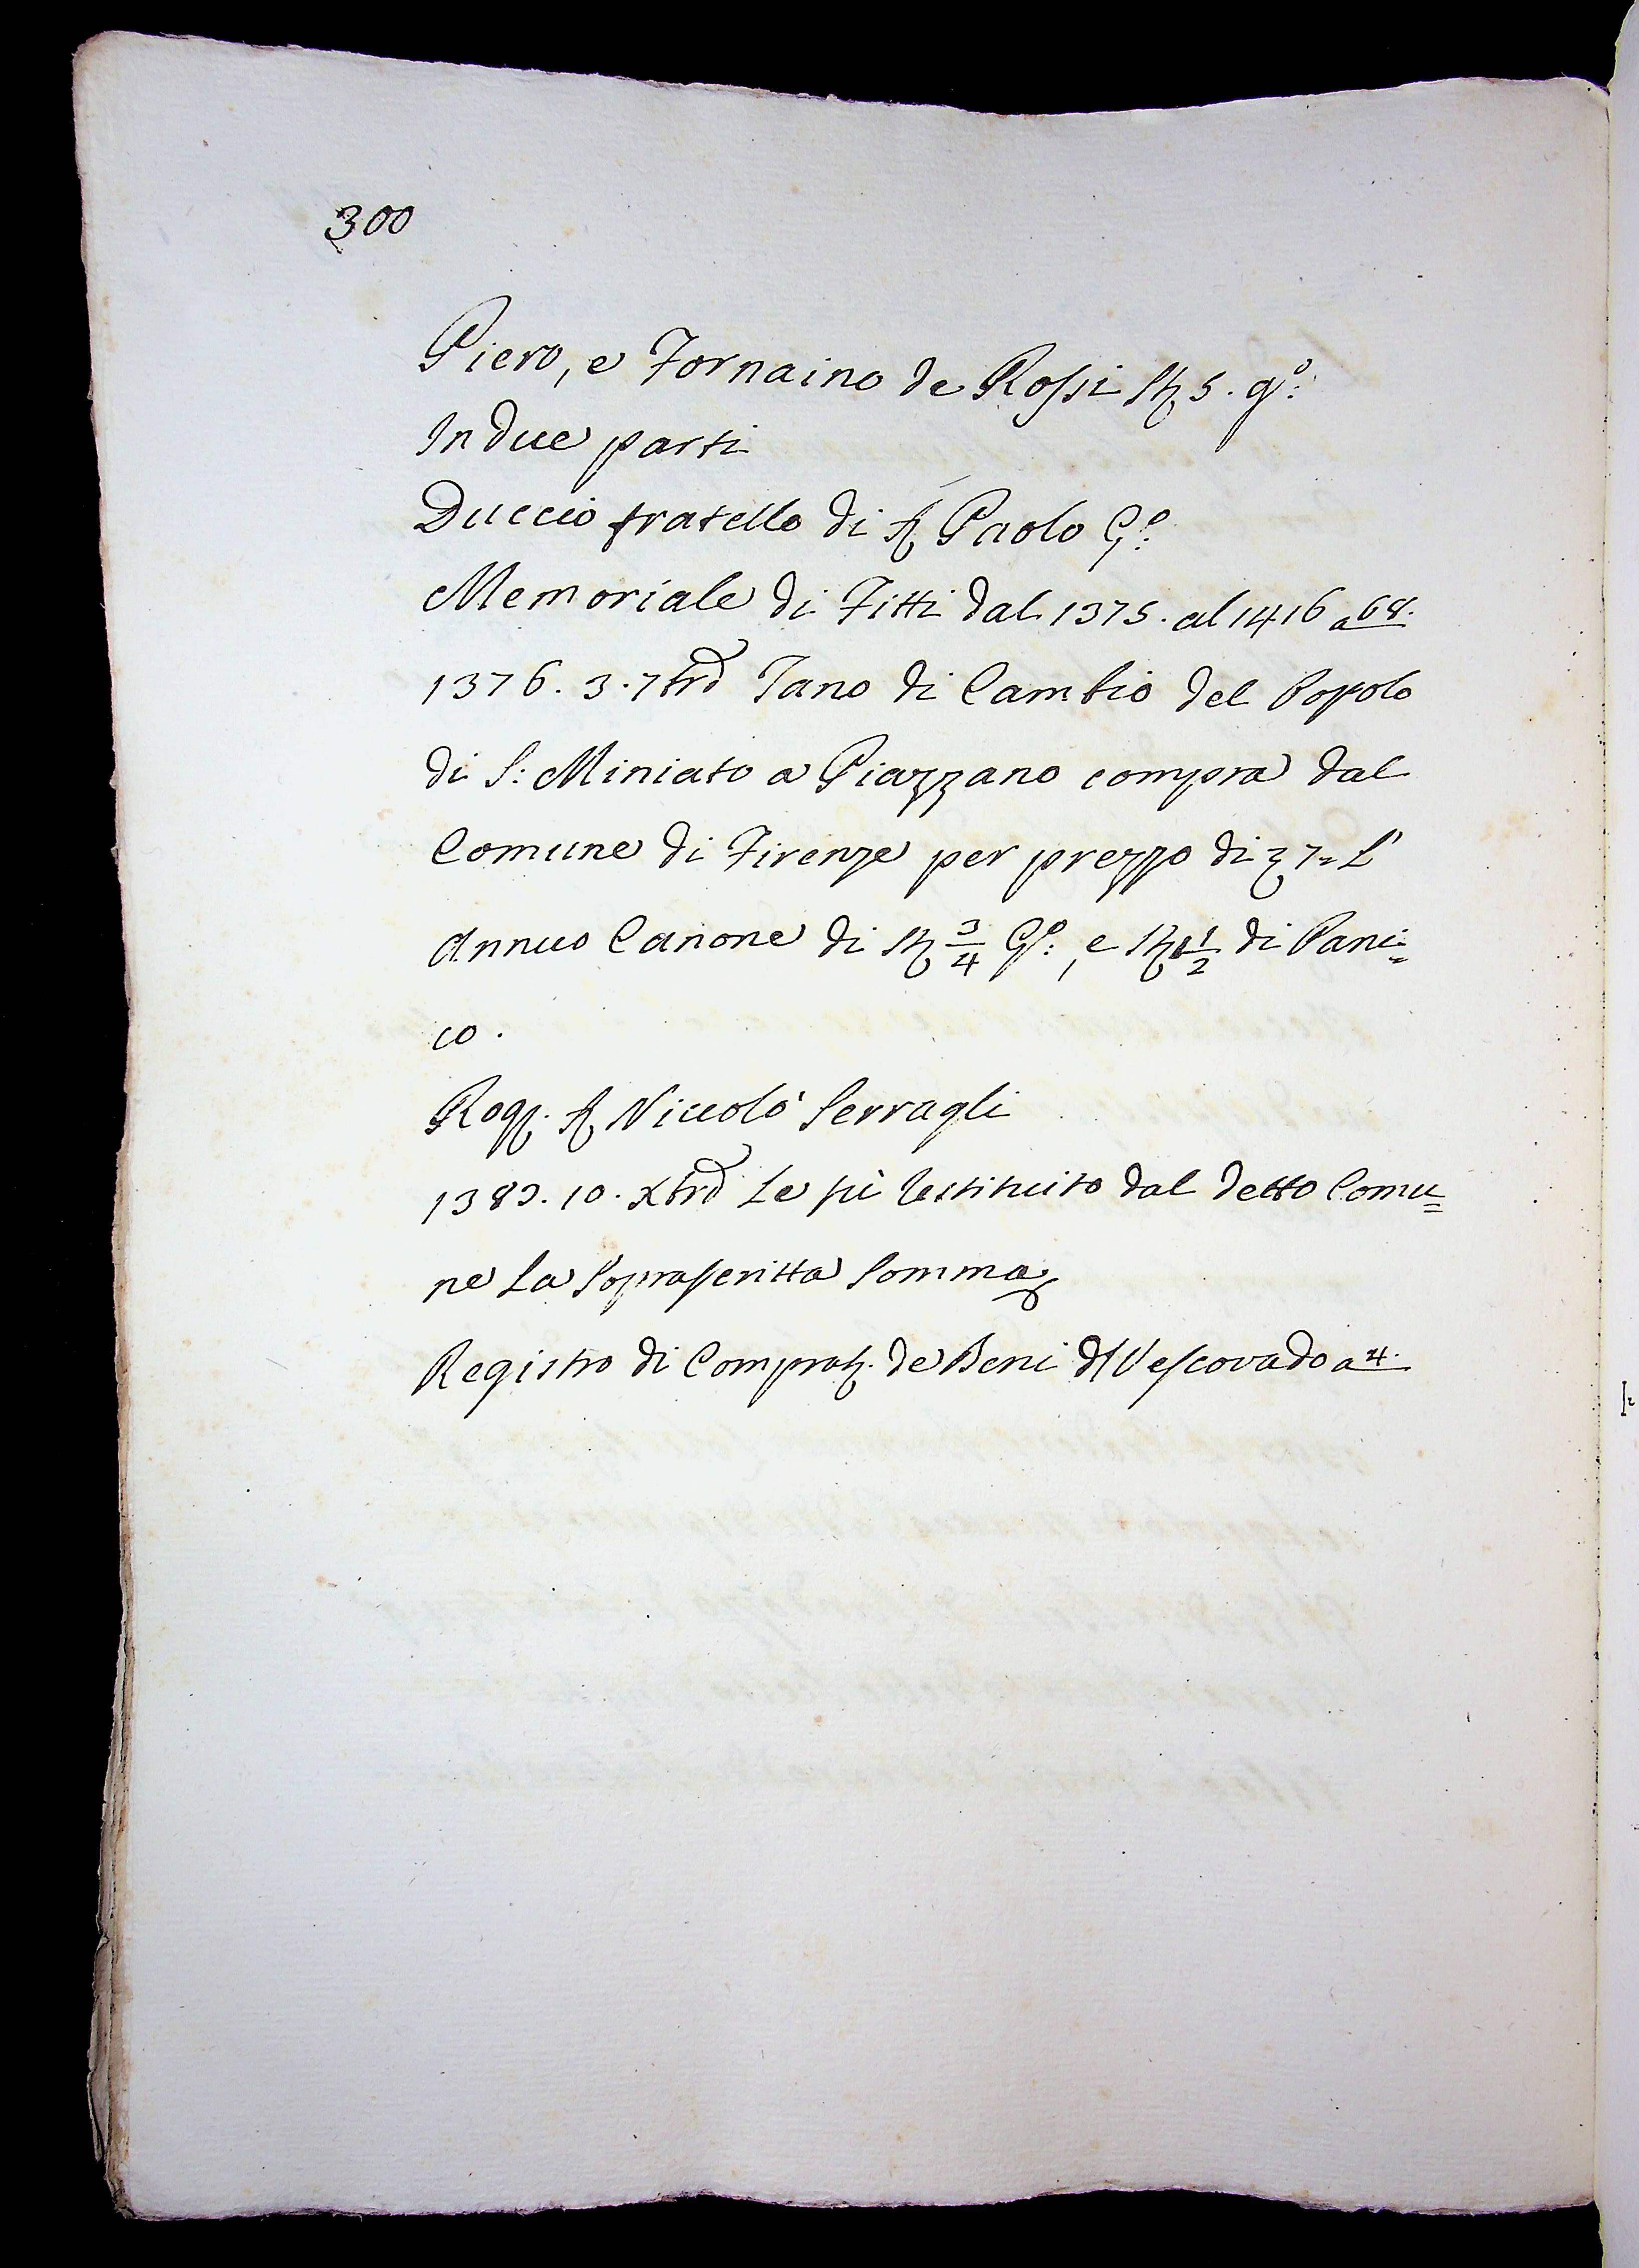 300
Piero, e Fornaino de Rossi St. 5. g.º:
In due parti
Duccio fratello di S. Paolo G.º:
Memoriale di Fitti dal 1375. al 1416 a 68.
1376. 3. 7brẽ Tano di Cambio del Popolo
di S: Miniato a Piazzano compra dal
Comune di Firenze per prezzo di 7 = L'
Annuo Canone di St. 3/4 G.º:, e St. 1/2 di Pani=
co.
Rog. S. Niccolò Serragli
1383. 10. Xbrẽ Le fù restituito dal detto Comu=
ne La Soprascritta Somma
Registro di Comprat. de Beni dl Vescovado a 4.